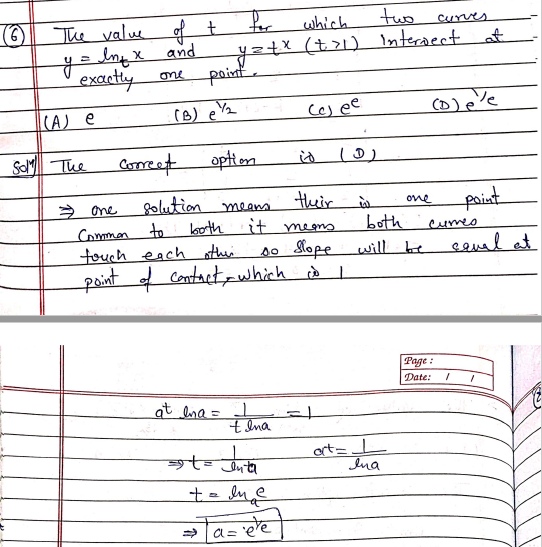 (6) The value of t for which two curves
y = ln_t x and y = t^x (t > 1) Intersect at
exactly one point.
(A) e (B) e^1/2 (C) e^e (D) e^1/e
Solⁿ The correct option is (D)
⇒ one solution means their is one point
Common to both it means both curves
touch each other so slope will be equal at
point of contact, which is 1
Page :
Date: / /
a^t ln a = 1/(t ln a) = 1
⇒ t = 1/ln a a^t = 1/ln a
t = ln_a e
⇒ a = e^1/e